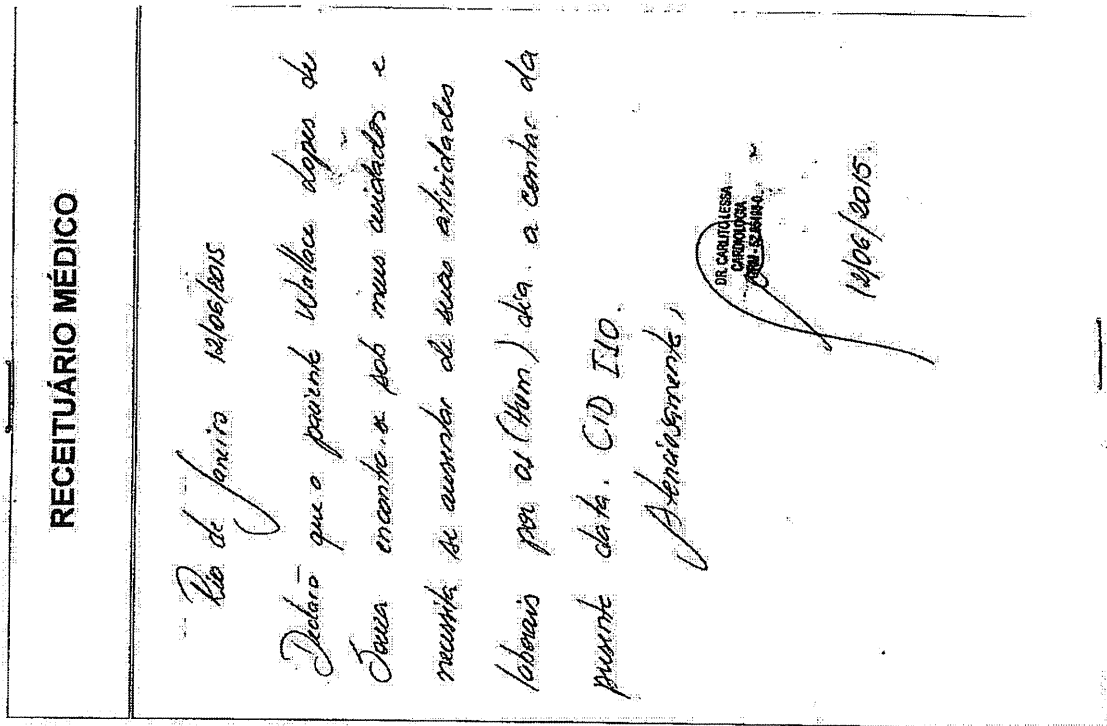 RECEITUÁRIO MÉDICO
Rio de Janeiro 12/06/2015
Declaro que o paciente Wallace Lopes de
Souza encontra-se sob meus cuidados e
necessita se ausentar de suas atividades
laborais por 01 (Hum) dia. a contar da
presente data. CID I10.
Atenciosamente,
DR. CARLITO LESSA
CARDIOLOGIA
12/06/2015.